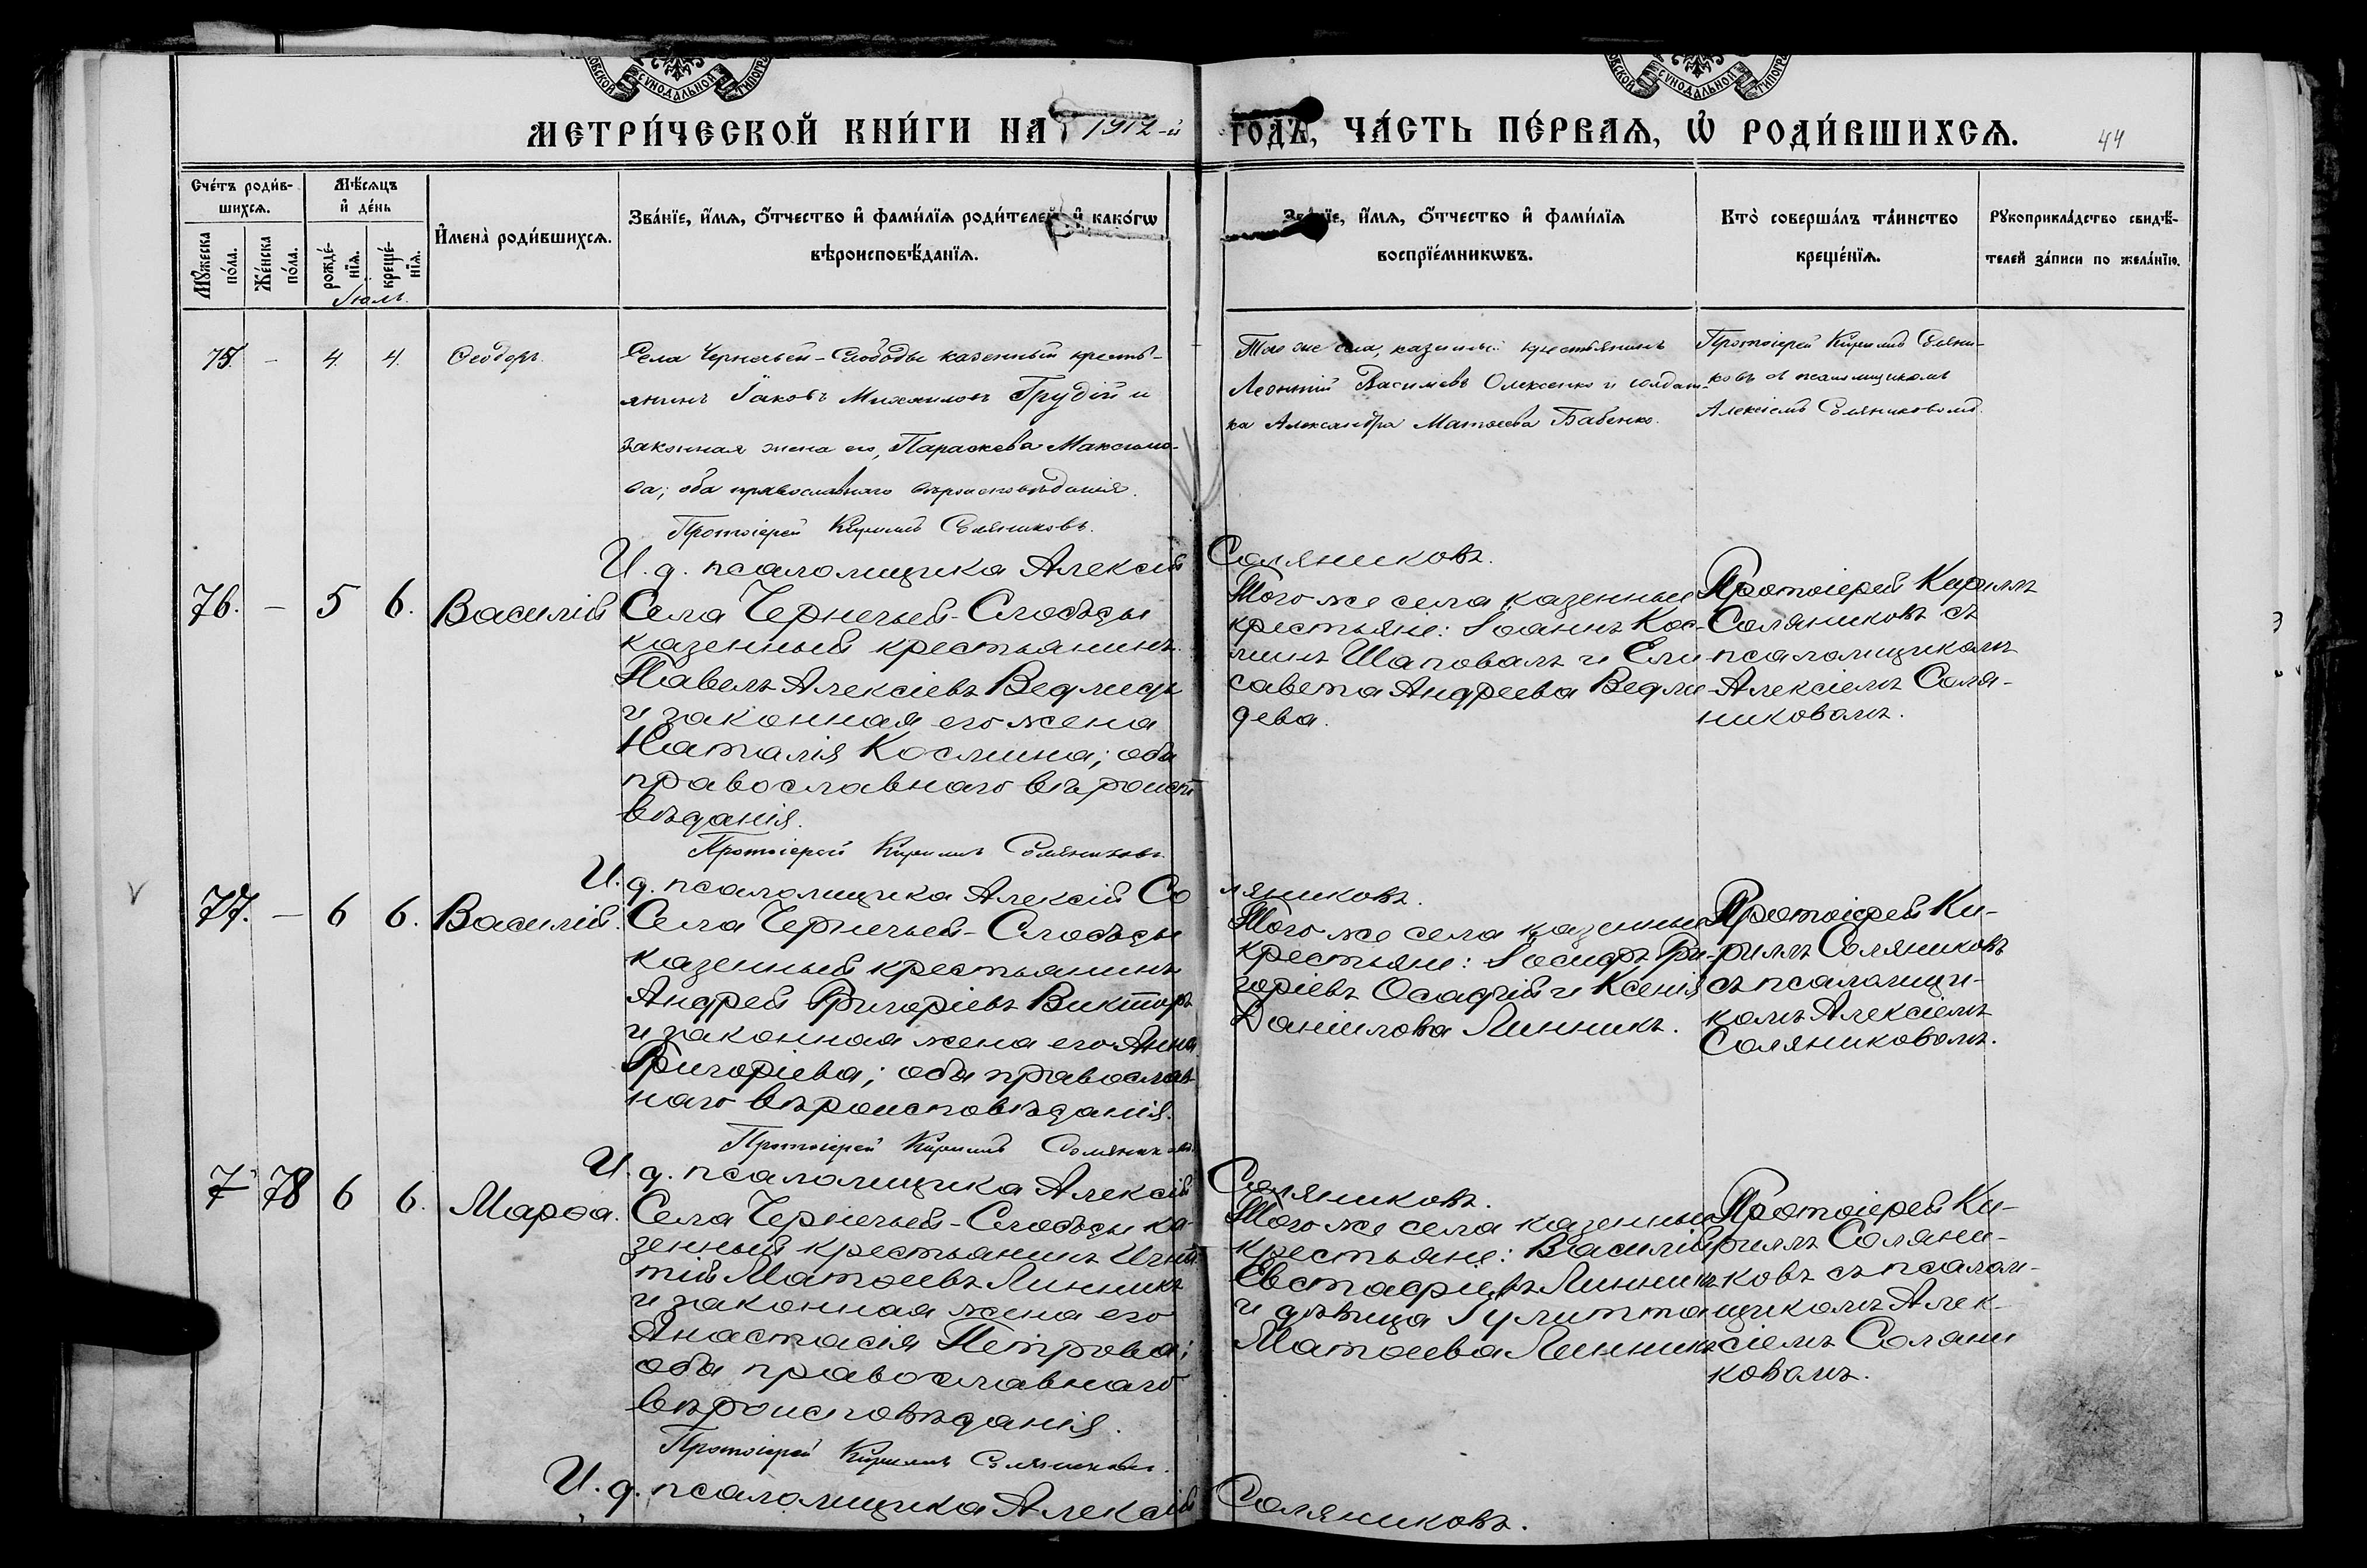 МЕТРИ́ЧЕСКОЙ КНИ́ГИ НА 1912-й ГОДЪ, ЧА́СТЬ ПЕ́РВАЯ, Ѡ҆ РОДИ́ВШИХСЯ.
44
Сче́тъ роди́в-
шихся.
Мѣ́сяцъ
и҆ де́нь
Мꙋ́жеска
по́ла.
Же́нска
по́ла.
рожде́-
нїя.
креще́-
нїя.
И҆мена̀ роди́вшихся.
Зва́нїе, и҆́мя, ѻ҆́тчество и҆ фами́лїя роди́телей, и҆ како́гѡ
вѣроисповѣ́данїя.
Зва́нїе, и҆́мя, ѻ҆́тчество и҆ фами́лїя
воспрїе́мникѡвъ.
Кто̀ соверша́лъ та́инство
креще́нїя.
Рꙋкоприкла́дство свидѣ́-
телей за́писи по жела́нїю.
Іюль.
75. - 4. 4. Ѳеодоръ.
Села Чернечьей-Слободы казенный кресть-
янинъ Іаковъ Михаиловъ Грудій и
законная жена его, Параскева Максимо-
ва; оба православнаго вѣроисповѣданія.
Протоіерей Кириллъ Соляниковъ.
И. д. псаломщика Алексій Соляниковъ.
Того же села, казенный крестьянинъ
Леонтій Васильевъ Олексенко и солдат-
ка Александра Матѳеева Бабенко.
Протоіерей Кириллъ Соляни-
ковъ съ псаломщикомъ
Алексіемъ Соляниковымъ.
76. - 5 6. Василій
Села Чернечьей-Слободы
казенный крестьянинъ
Павелъ Алексіевъ Ведмедь
и законная его жена
Наталія Космина; оба
православнаго вѣроиспо
вѣданія.
Протоіерей Кириллъ Соляниковъ.
И. д. псаломщика Алексій Соляниковъ.
Того же села казенные
крестьяне: Іоаннъ Кос-
минъ Шаповалъ и Ели
савета Андреева Ведме-
дева.
Протоіерей Кириллъ
Соляниковъ съ
псаломщикомъ
Алексіемъ Соля-
никовымъ.
77. - 6 6. Василій.
Села Чернечьей-Слободы
казенный крестьянинъ
Андрей Григоріевъ Викторъ
и законная жена его Анна
Григоріева; оба православ
наго вѣроисповѣданія.
Протоіерей Кириллъ Соляниковъ.
И. д. псаломщика Алексій Соляниковъ.
Того же села казенные
крестьяне: Іосифъ Гри-
горіевъ Осадчій и Ксенія
Даніилова Линникъ.
Протоіерей Ки-
риллъ Соляниковъ
съ псаломщи-
комъ Алексіемъ
Соляниковымъ.
7 78 6 6. Марѳа.
Села Чернечьей-Слободы ка-
зенный крестьянинъ Игна
тій Матѳеевъ Линникъ
и законная жена его
Анастасія Петрова;
оба православнаго
вѣроисповѣданія.
Протоіерей Кириллъ Соляниковъ.
И. д. псаломщика Алексій Соляниковъ.
Того же села казенные
крестьяне: Василій
Евстафіевъ Линникъ
и дѣвица Іулитта
Матѳеева Линникъ
Протоіерей Ки-
риллъ Соляни-
ковъ съ псалом-
щикомъ Алек-
сіемъ Соляни
ковымъ.